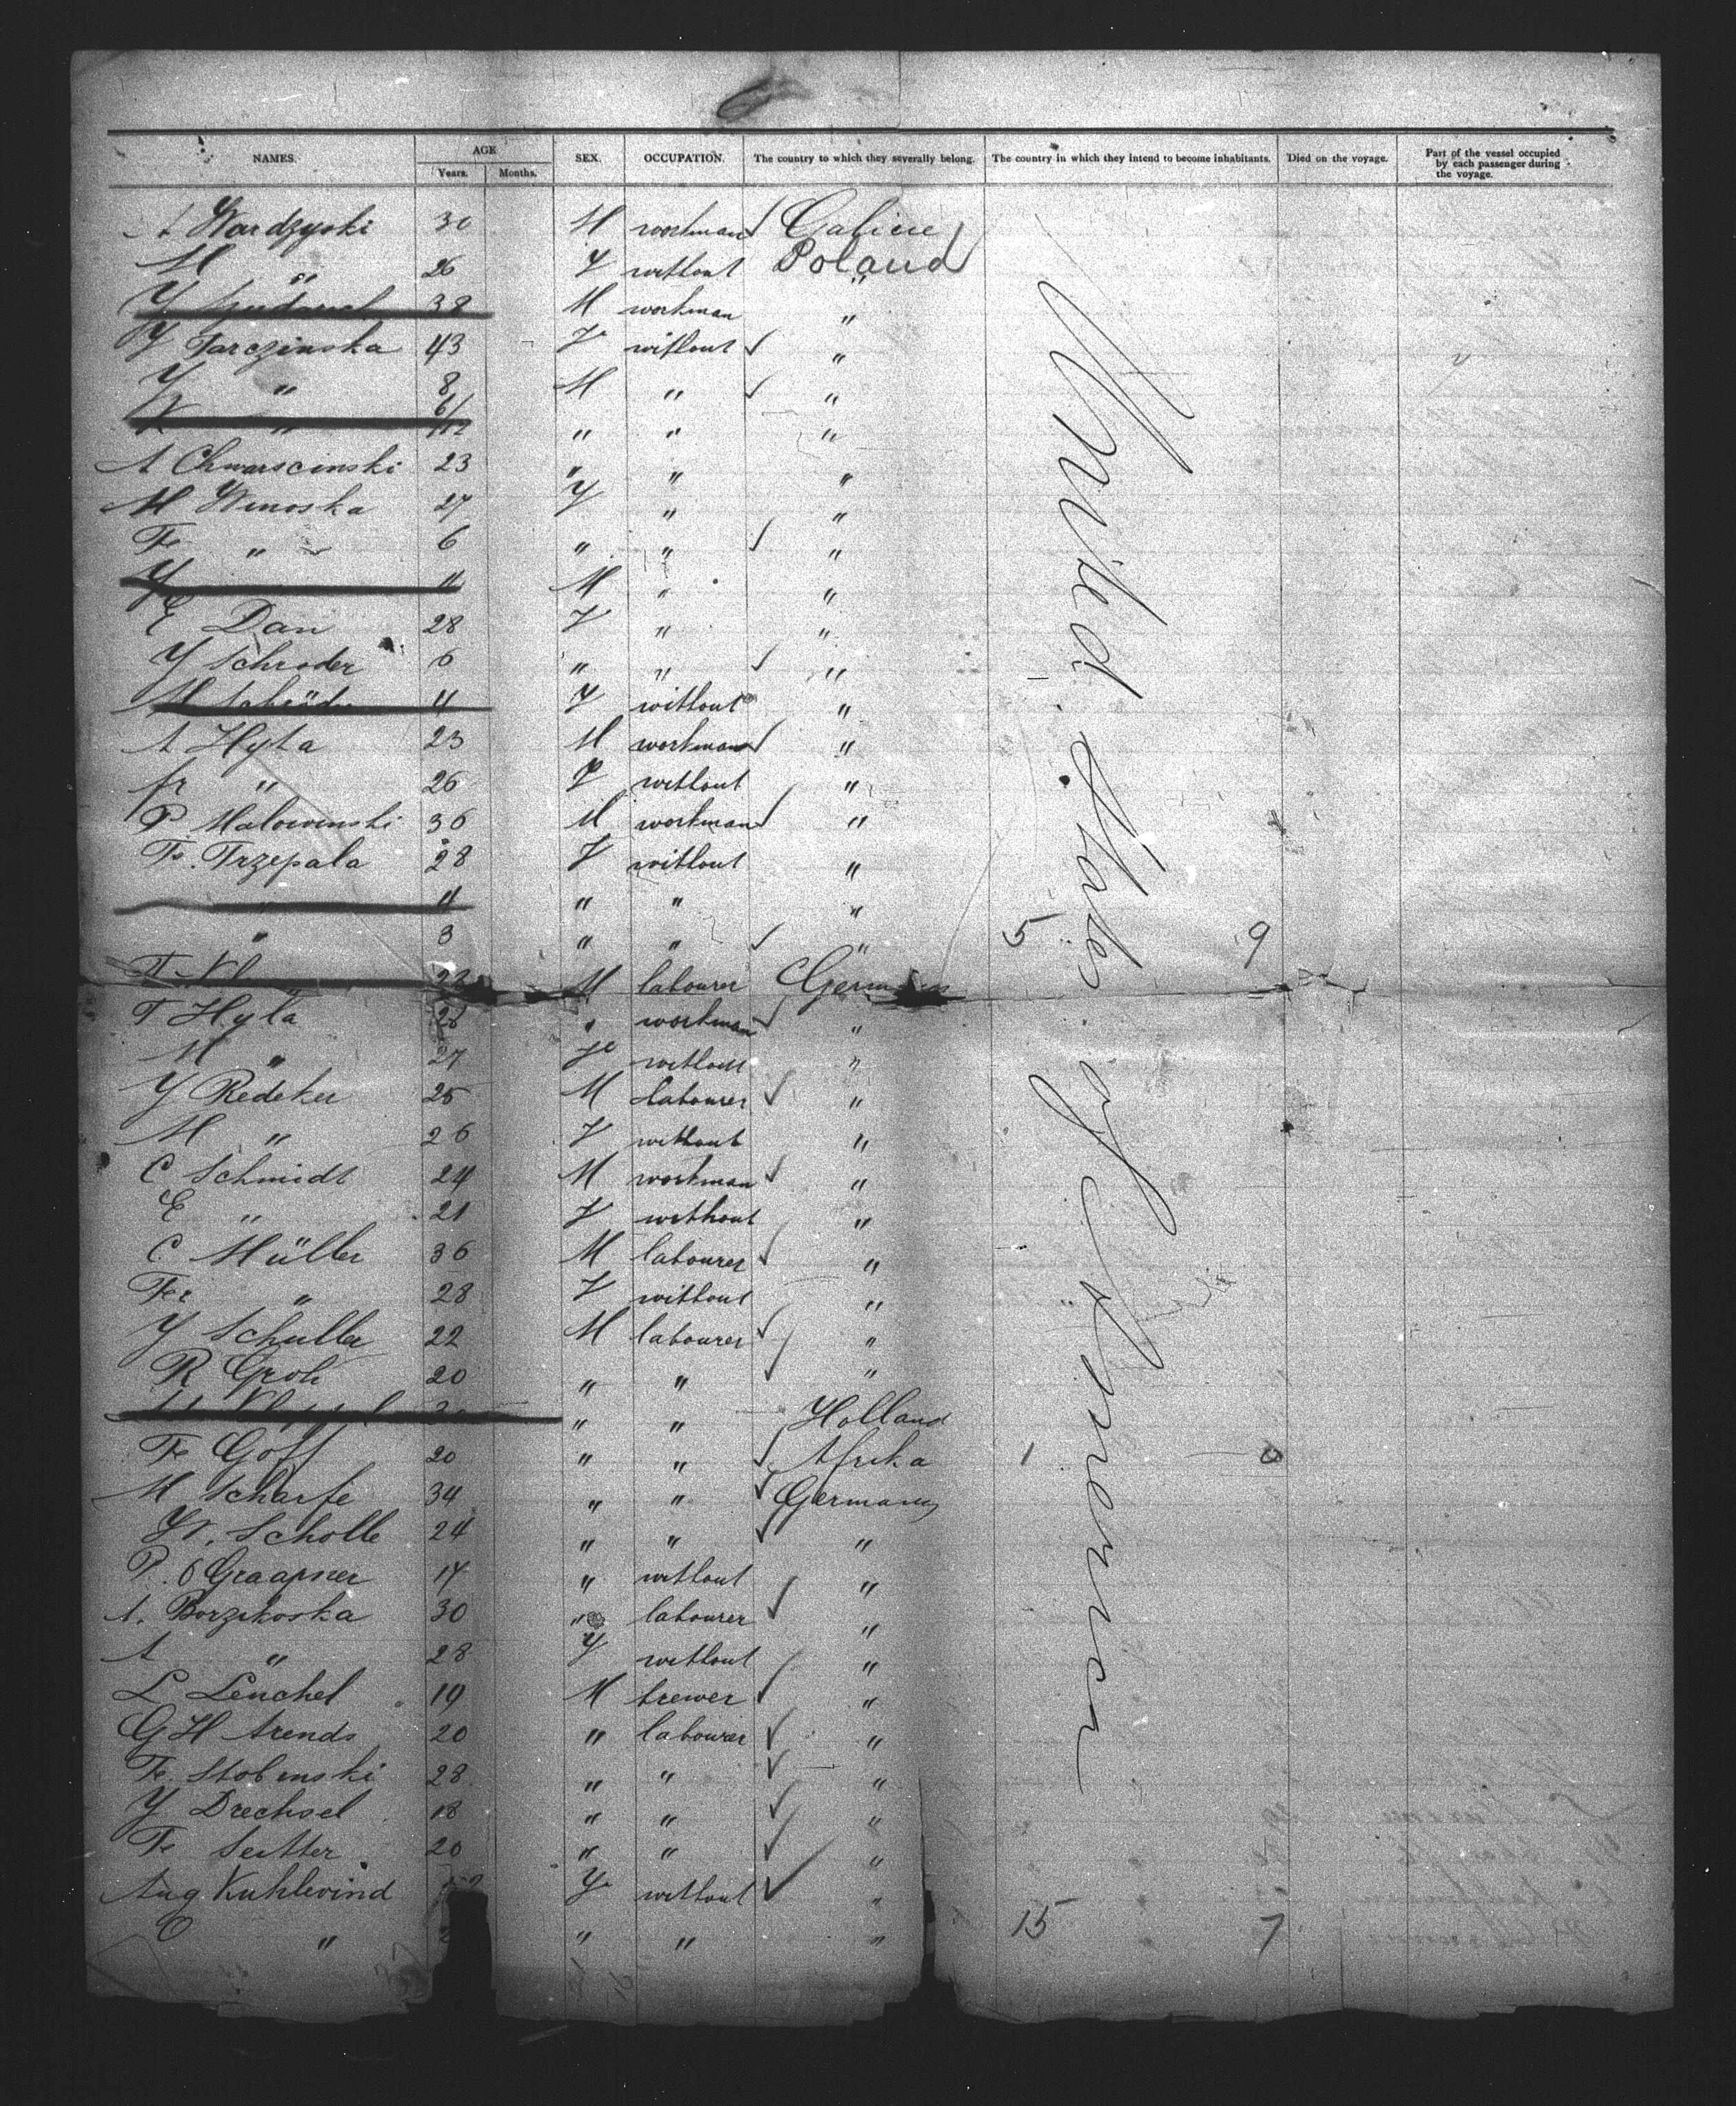 NAMES. AGE Years. Months. SEX. OCCUPATION. The country to which they severally belong. The country in which they intend to become inhabitants. Died on the voyage. Part of the vessel occupied by each passenger during the voyage.
A Wardzyski 30 M workman Galicie
M " 26 F without Poland "
Y 38 M workman "
Y Tarczinska 43 F without "
Y " 8 M " "
K " 6/12 " " "
A Chwarscinski 23 " " "
M Winoska 27 F " "
Fr " 6 " " "
Y 11 M " "
E Dan 28 F " "
Y Schroder 6 " " "
M Schröder 4 F without "
A Hyta 23 M workman "
fr " 26 F without "
P Malowinski 36 M workman "
Fr. Trzepala 28 F without "
" 4 " " "
" 3 " " " 5 9
M labourer German
T Hyla 28 " workman "
M " 27 Fe without "
Y Redeker 25 M labourer "
M " 26 F without "
C Schmidt 24 M workman "
E " 21 F without "
C Müller 36 M labourer "
Fr " 28 F without "
Y Schuller 22 M labourer "
R Groh 20 " " "
" " Holland
Fr Goff 20 " " Afrika 1 0
M Scharfe 34 " " Germany
W. Scholle 24 " " "
P. Graapner 17 " without "
A. Borzikoska 30 " labourer "
A " 28 F without "
L Lenchel 19 M brewer "
G H Arends 20 " labourer "
Fr. Stobinski 28 " " "
Y Drechsel 18 " " "
Fr Seitter 20 " " "
Aug Kuhlewind F without "
O " " " " 15 7
United States of America